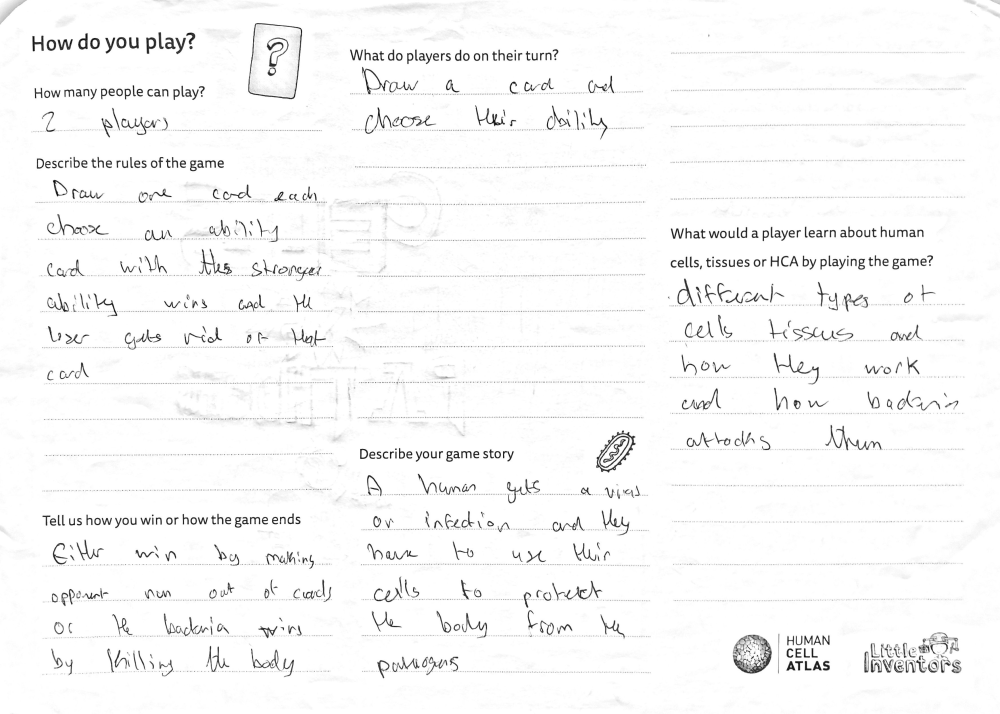 How do you play?
How many people can play?
2 players
Describe the rules of the game
Draw one card each
choose an ability
card with the stronger
ability wins and the
loser gets rid of that
card
Tell us how you win or how the game ends
Either win by making
opponent run out of cards
or the bacteria wins
by killing the body
What do players do on their turn?
Draw a card and
choose their ability
Describe your game story
A human gets a virus
or infection and they
have to use their
cells to protect
the body from the
pathogens
What would a player learn about human
cells, tissues or HCA by playing the game?
different types of
cells tissues and
how they work
and how bacteria
attacks them
HUMAN
CELL
ATLAS
Little
Inventors